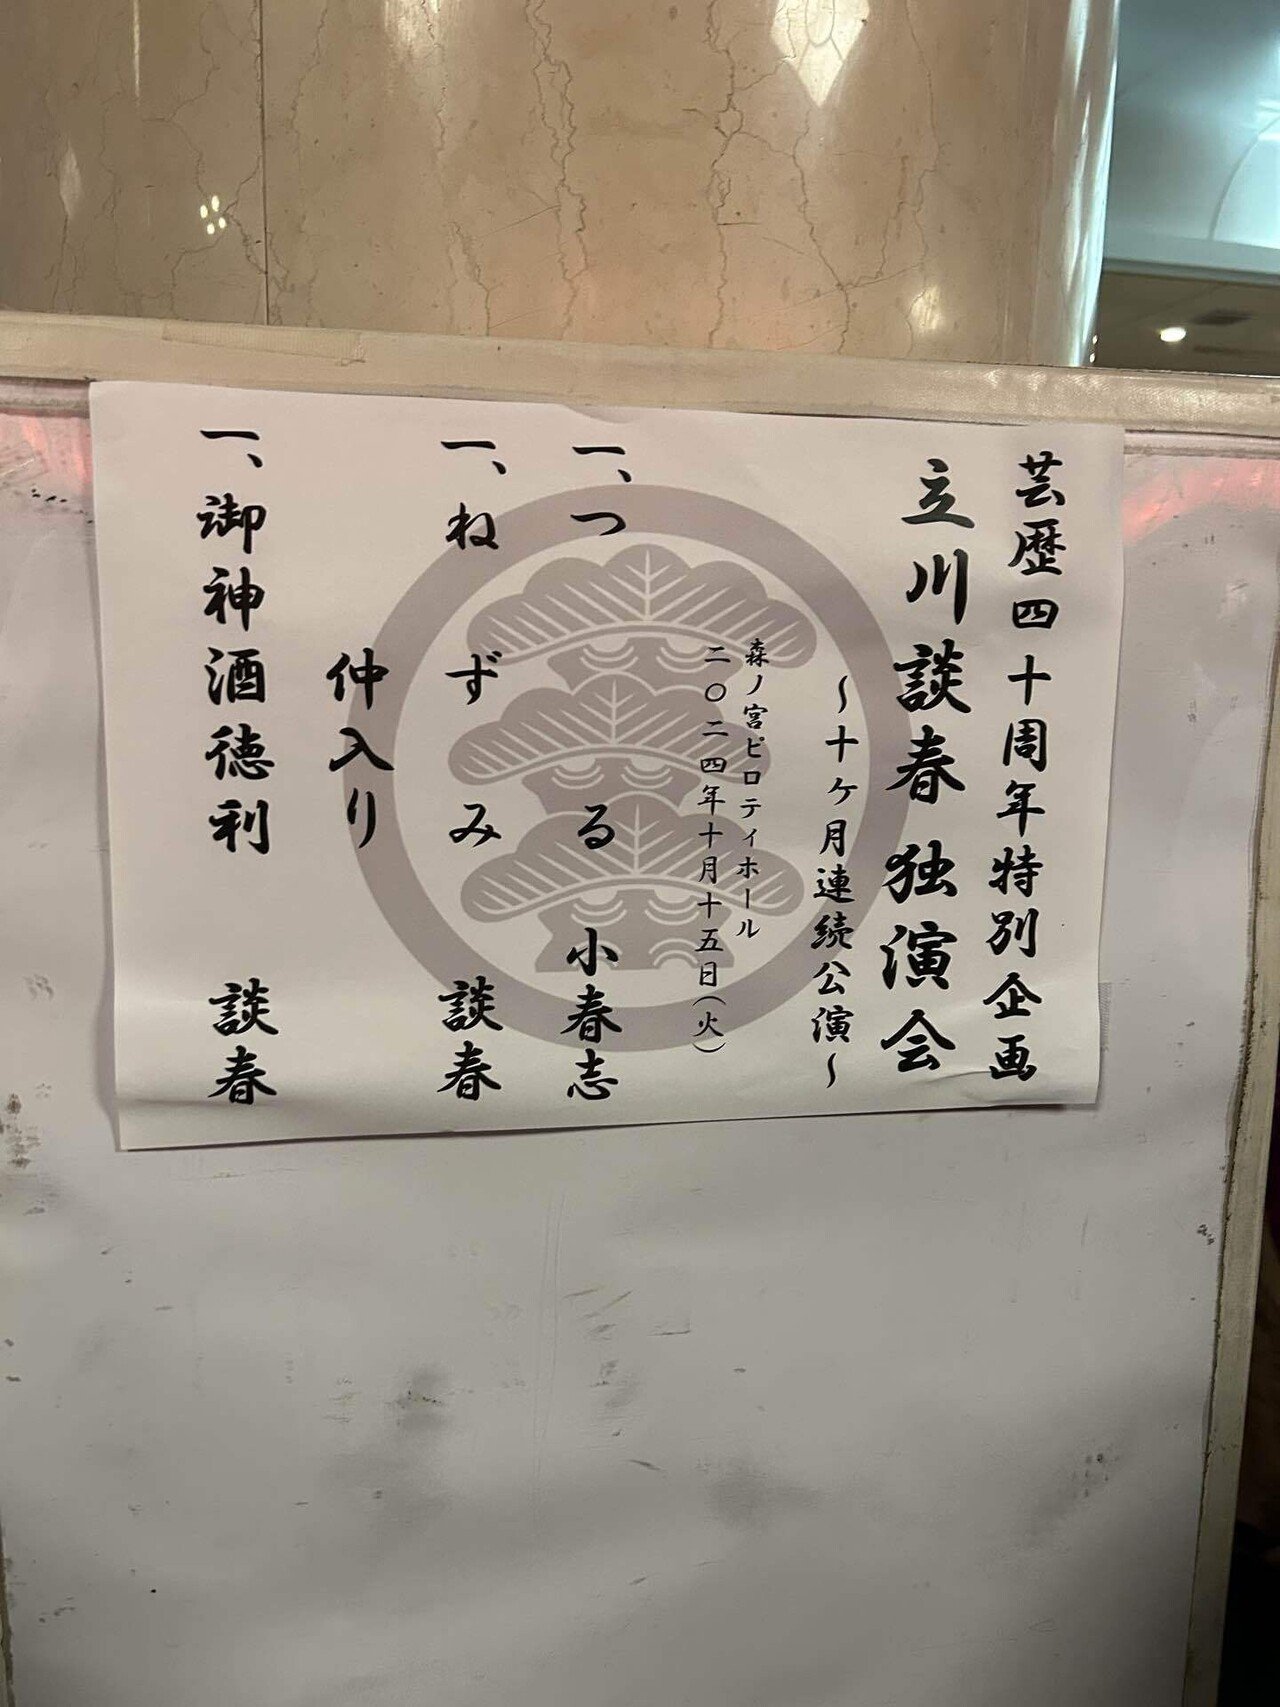 芸歴四十周年特別企画
立川談春独演会
～十ヶ月連続公演～
森ノ宮ピロティホール
二〇二四年十月十五日(火)
一、つる 小春志
一、ねずみ 談春
仲入り
一、御神酒徳利 談春